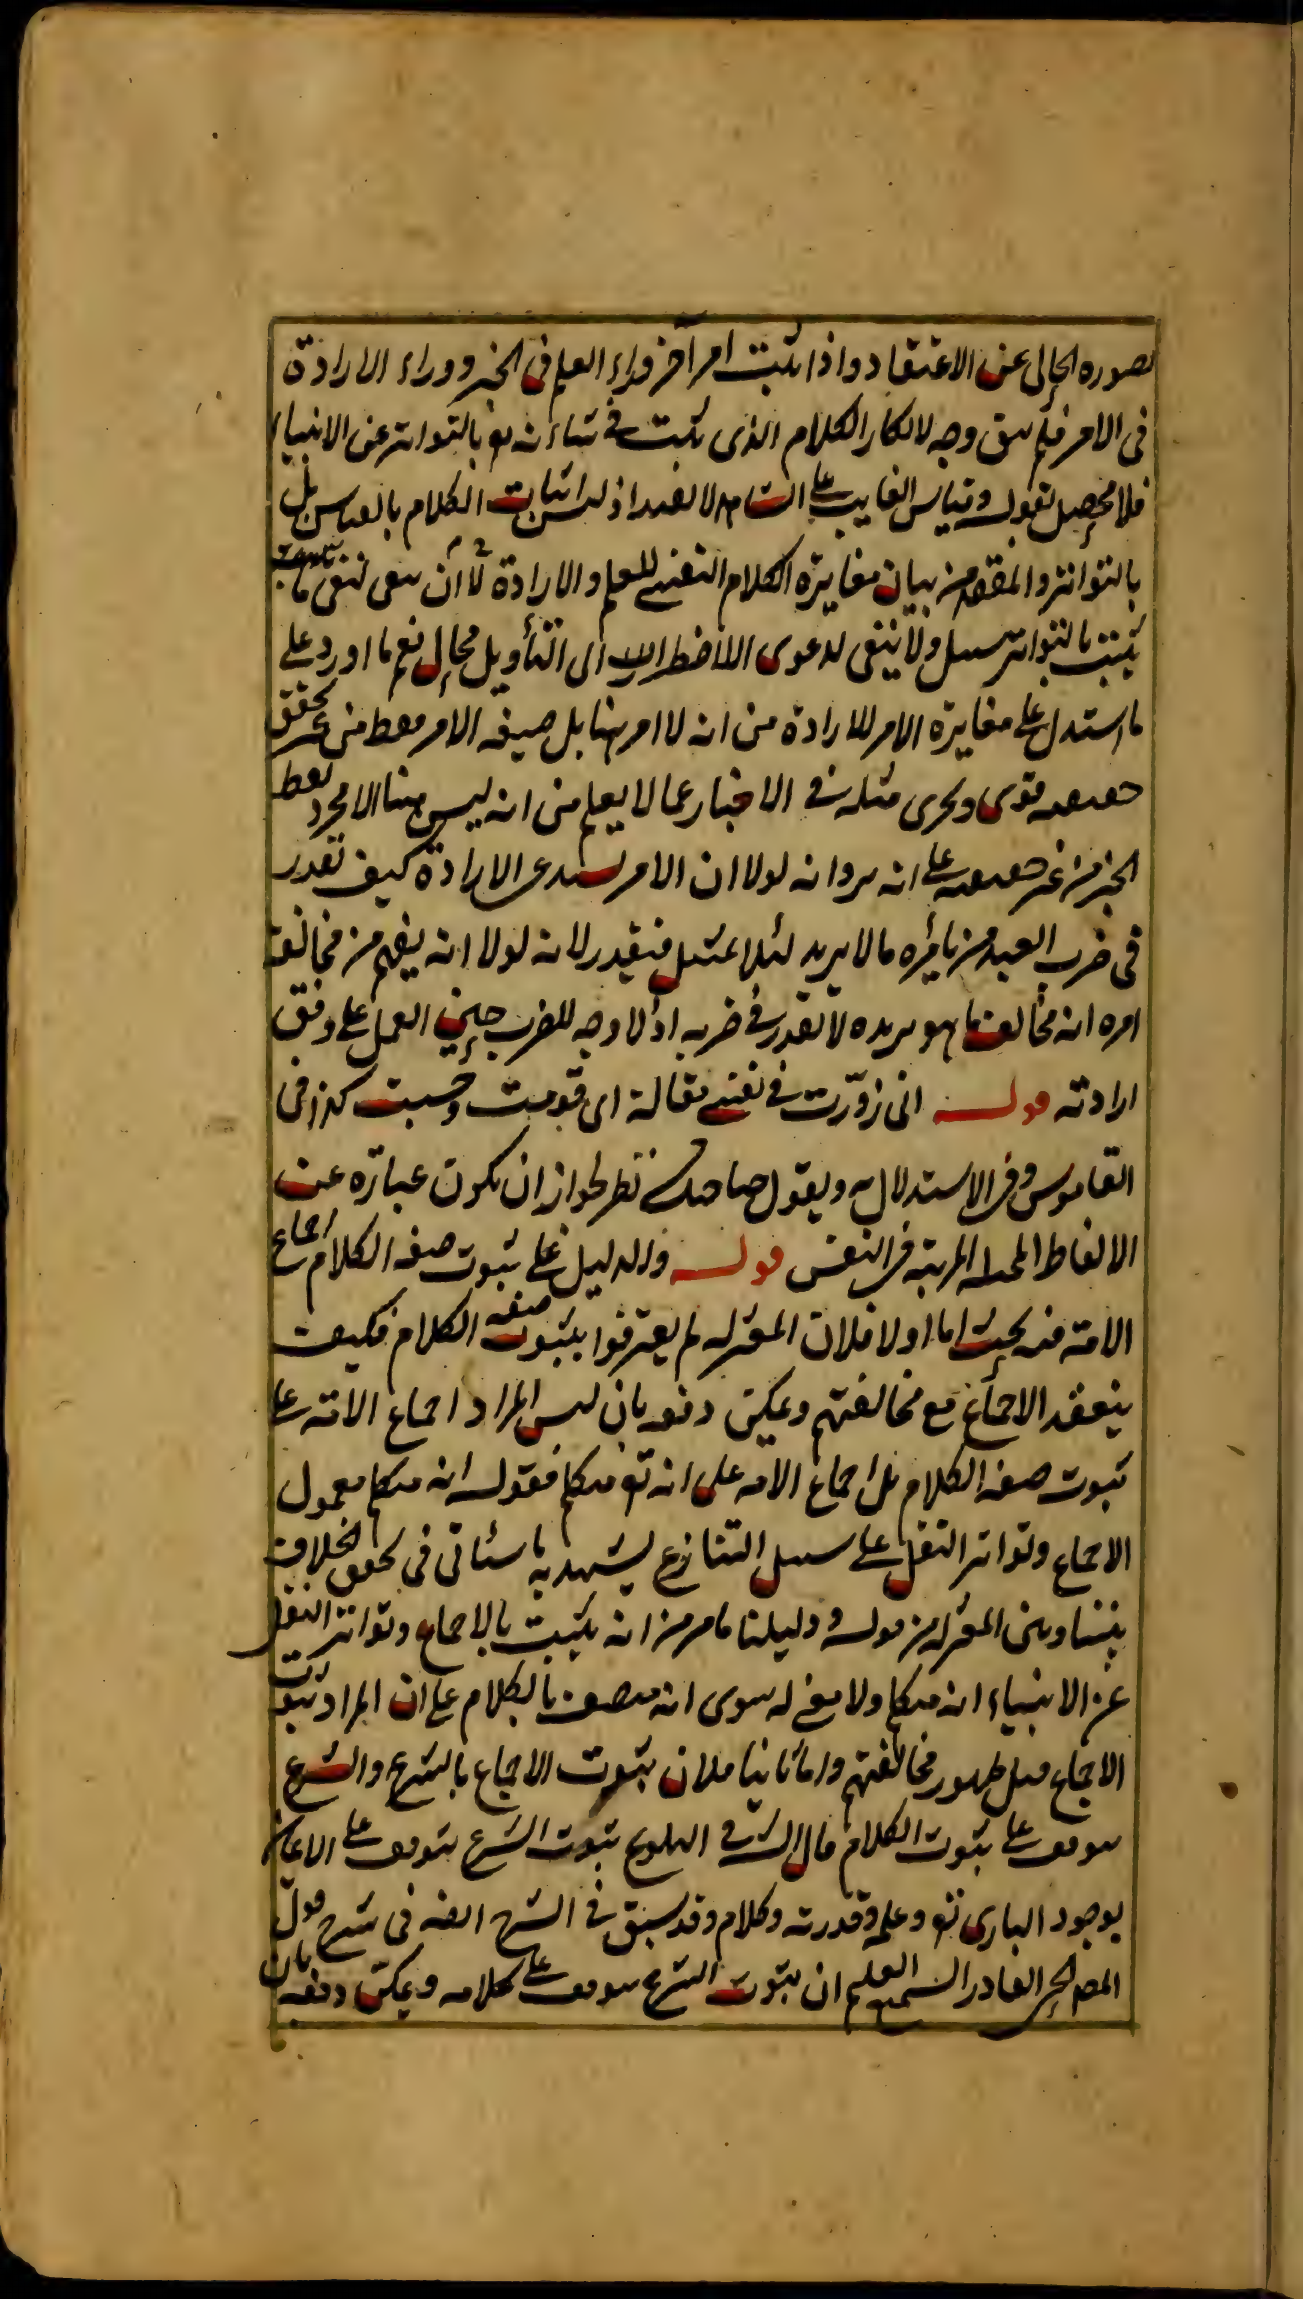 تصوره الخالي عن الاعتقاد واذا ثبت امر آخر وراء العلم في الخبر ووراء الارادة
في الامر فلم يبق وجه لانكار الكلام الذي ثبت في شانه تع بالتواتر عن الانبياء
فلا محصل لقوله وقياس الغايب على الشاهد لا يفيد اذ ليس اثبات الكلام بالقياس بل
بالتواتر والمقصود من بيان مغايرة الكلام النفسي للعلم والارادة ان
ثبت بالتواتر سبيل ولا ينبغي لدعوى الاضطرار الى التأويل مجال نعم ما اورد على
ما استدل على مغايرة الامر للارادة من انه لا امر هنا بل صيغه الامر فقط من غير تحقق
حقيقته قوى ويجرى مثله في الاخبار عما لا يعلم من انه ليس هنا الا مجرد لفظ
الخبر من غير حقيقته على انه يرد انه لولا ان الامر يستدعى الارادة كيف تعذر
في ضرب العبد من يامره ما لا يريد لئلا يمتثل فيعذر لانه لولا انه يفهم من مخالفة
امره انه مخالف ما هو يريده لا تعذر في ضربه اذ لا وجه للضرب حين العمل على وفق
ارادته قوله انى زورت في نفسى مقالة اى قومت وحسنت كذا في
القاموس وفي الاستدلال به وبقول صاحبك نظر لجواز ان يكون عبارة عن
الالفاظ المخيله المرتبه في النفس قوله والدليل على ثبوت صفه الكلام اجماع
الامة فيه بحث اما اولا فلان المعتزله لم يعترفوا بثبوت صفه الكلام فكيف
ينعقد الاجماع مع مخالفتهم ويمكن دفعه بان ليس المراد اجماع الامة على
ثبوت صفه الكلام بل اجماع الامه على انه تع متكلم فقوله انه متكلم معمول
الاجماع وتواتر النقل على سبيل التنازع يشهد به ما سيأتي في تحقق الخلاف
بيننا وبين المعتزله من قوله ودليلنا ما مر من انه يثبت بالاجماع وتواتر النقل
عن الانبياء انه متكلم ولا معنى له سوى انه متصف بالكلام على ان المراد ثبوت
الاجماع قبل ظهور مخالفتهم واما ثانيا فلان ثبوت الاجماع بالشرع والشرع
يتوقف على ثبوت الكلام قال الش في التلويح ثبوت الشرع يتوقف على الايمان
بوجود البارى تع وعلمه وقدرته وكلامه وقد سبق في الشرح ايضه في شرح قول
المص الحي القادر السميع العليم ان ثبوت الشرع يتوقف على كلامه ويمكن دفعه بان